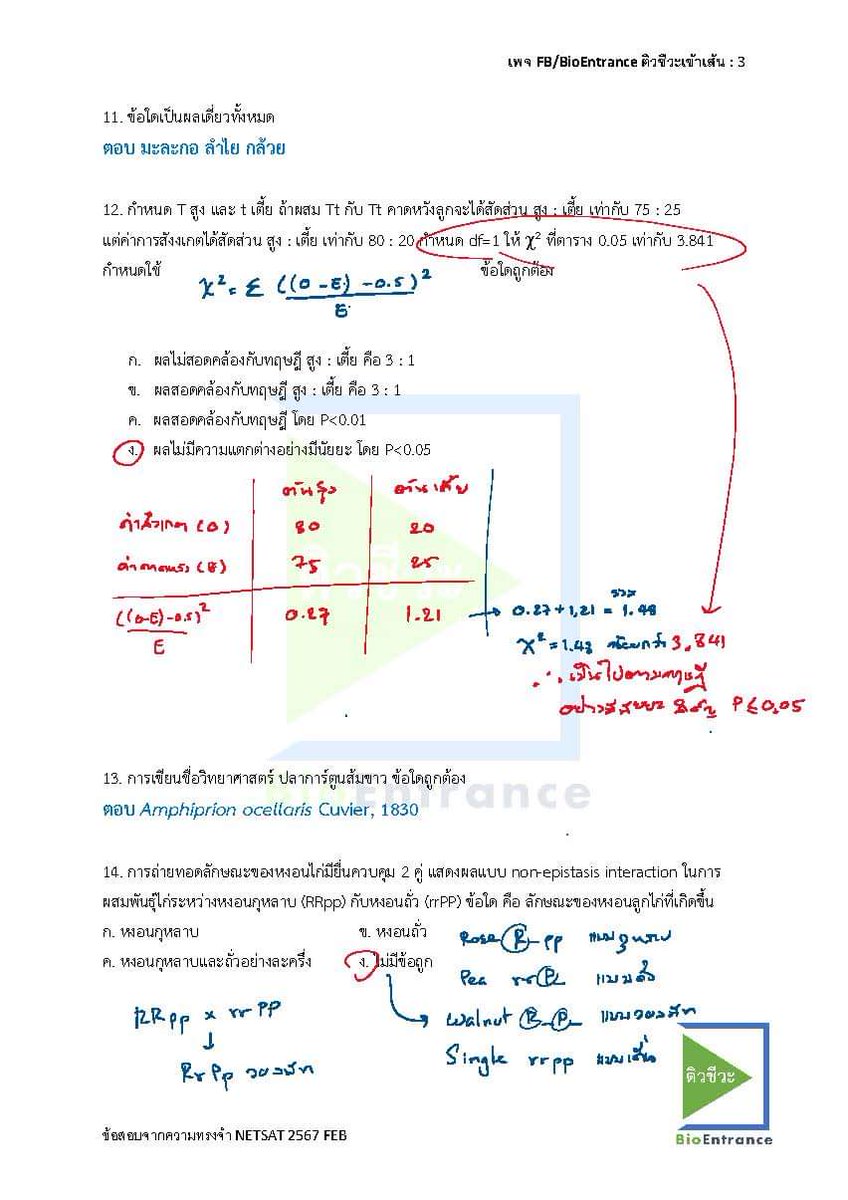 เพจ FB/BioEntrance ติวชีวะเข้าเส้น : 3
11. ข้อใดเป็นผลเดี่ยวทั้งหมด
ตอบ มะละกอ ลำไย กล้วย
12. กำหนด T สูง และ t เตี้ย ถ้าผสม Tt กับ Tt คาดหวังลูกจะได้สัดส่วน สูง : เตี้ย เท่ากับ 75 : 25
แต่ค่าการสังเกตได้สัดส่วน สูง : เตี้ย เท่ากับ 80 : 20 กำหนด df=1 ให้ χ² ที่ตาราง 0.05 เท่ากับ 3.841
กำหนดใช้ χ² = Σ ((O - E) - 0.5)² / E ข้อใดถูกต้อง
ก. ผลไม่สอดคล้องกับทฤษฎี สูง : เตี้ย คือ 3 : 1
ข. ผลสอดคล้องกับทฤษฎี สูง : เตี้ย คือ 3 : 1
ค. ผลสอดคล้องกับทฤษฎี โดย P<0.01
ง. ผลไม่มีความแตกต่างอย่างมีนัยยะ โดย P<0.05
ต้นสูง ต้นเตี้ย
ค่าสังเกต (O) 80 20
ค่าคาดหวัง (E) 75 25
((O-E)-0.5)² / E 0.27 1.21 → 0.27 + 1.21 = 1.48 รวม
χ² = 1.48 น้อยกว่า 3.841
∴ เป็นไปตามทฤษฎี
P ≤ 0.05
ติวชีวะ
BioEntrance
13. การเขียนชื่อวิทยาศาสตร์ ปลาการ์ตูนส้มขาว ข้อใดถูกต้อง
ตอบ Amphiprion ocellaris Cuvier, 1830
14. การถ่ายทอดลักษณะของหงอนไก่มียีนควบคุม 2 คู่ แสดงผลแบบ non-epistasis interaction ในการ
ผสมพันธุ์ไก่ระหว่างหงอนกุหลาบ (RRpp) กับหงอนถั่ว (rrPP) ข้อใด คือ ลักษณะของหงอนลูกไก่ที่เกิดขึ้น
ก. หงอนกุหลาบ ข. หงอนถั่ว
ค. หงอนกุหลาบและถั่วอย่างละครึ่ง ง. ไม่มีข้อถูก
Rose R_pp แบบกุหลาบ
Pea rrP_ แบบถั่ว
Walnut R_P_ แบบวอลนัท
Single rrpp แบบเดี่ยว
RRpp x rrPP
↓
RrPp วอลนัท
ติวชีวะ
BioEntrance
ข้อสอบจากความทรงจำ NETSAT 2567 FEB